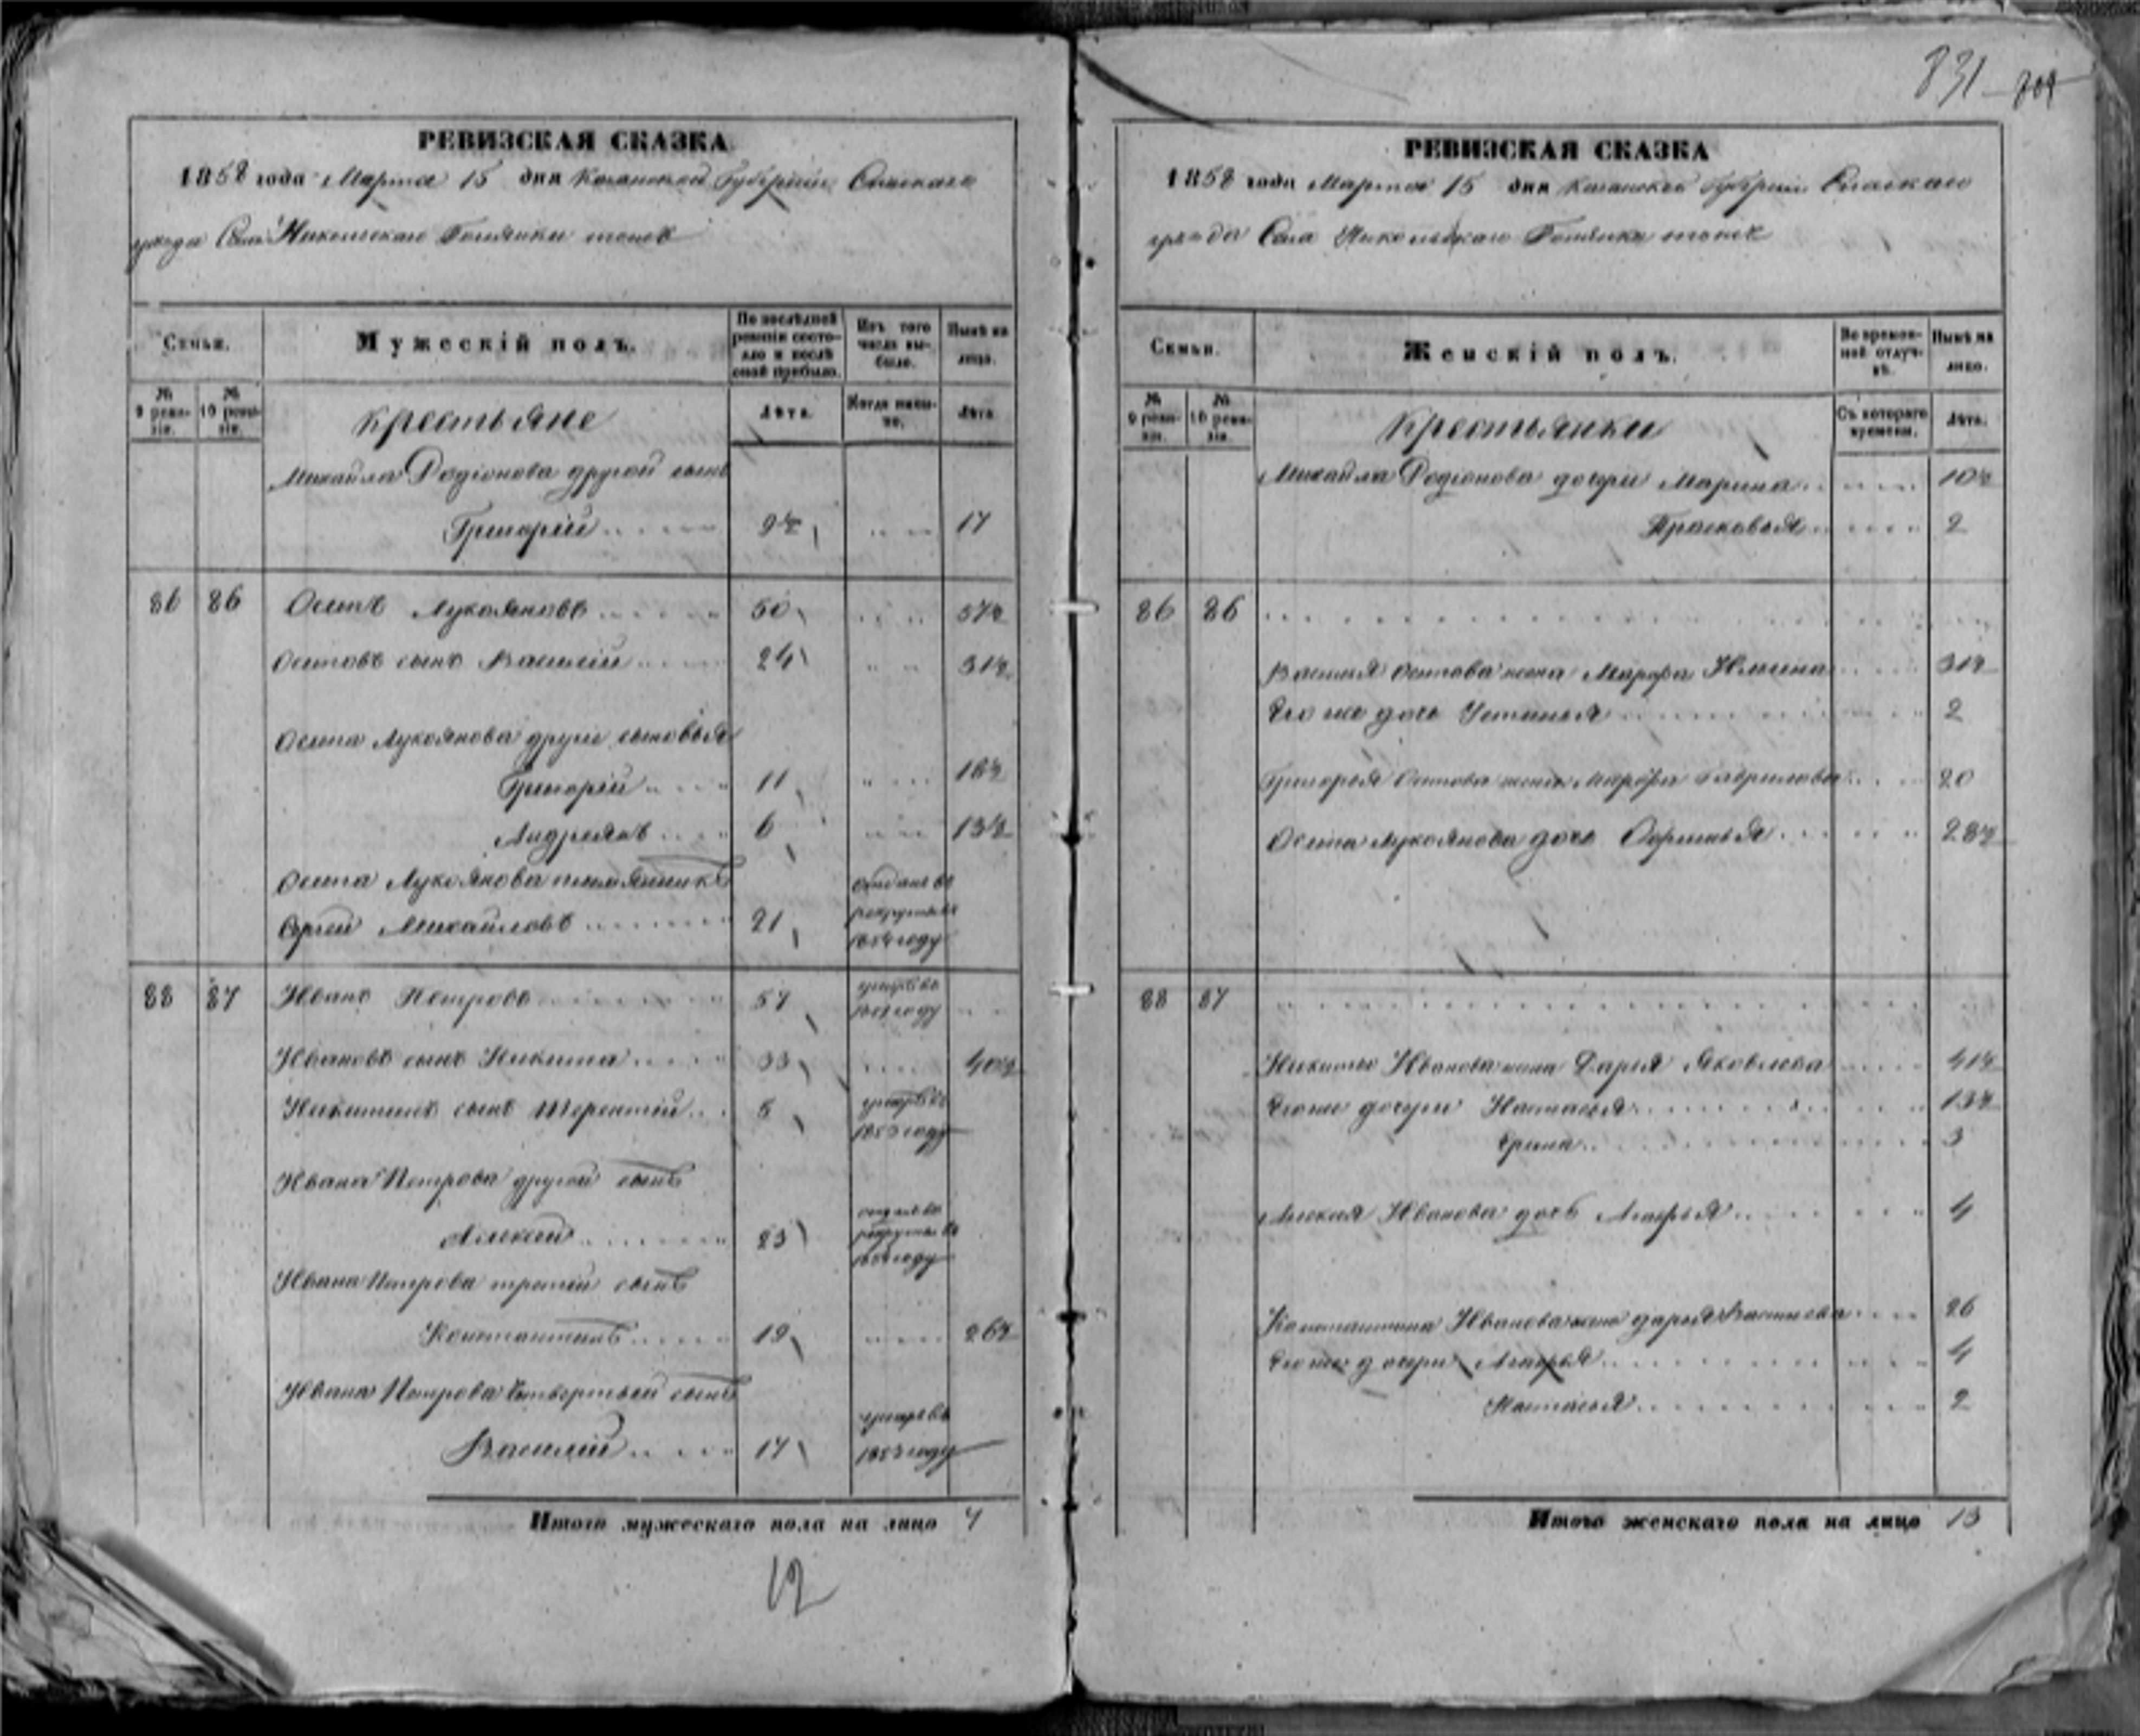 831 809
РЕВИЗСКАЯ СКАЗКА
1858 года Марта 15 дня Казанской Губернии Спаскаго
уезда Села Никольскаго
Семьи.
Мужескій полъ.
По послѣдней ревизіи состояло и послѣ оной прибыло.
Изъ того числа выбыло.
Нынѣ на лицо.
№ 9 ревизіи.
№ 10 ревизіи.
Крестьяне
Лѣта.
Когда именно.
Лѣта.
Михайла Родіонова другой сынъ
Григорій 9½ 17
86 86 Осипъ Лукояновъ 50 57½
Осиповъ сынъ Василій 24 31½
Осипа Лукоянова другіе сыновья
Григорій 11 18½
Андреянъ 6 13½
Осипа Лукоянова племянникъ
Сергѣй Михайловъ 21 отданъ въ рекруты въ 1854 году
88 87 Иванъ Петровъ 57 умеръ въ году
Ивановъ сынъ Никита 33 40½
Никитинъ сынъ Терентій 5 умеръ въ 1853 году
Ивана Петрова другой сынъ
Алексѣй 23 отданъ въ рекруты въ году
Ивана Петрова третій сынъ
Константинъ 19 26½
Ивана Петрова четвертый сынъ
Василій 17 умеръ въ 1853 году
Итого мужескаго пола на лицо 7
12
РЕВИЗСКАЯ СКАЗКА
1858 года Марта 15 дня Казанской Губернии Спаскаго
уезда Села Никольскаго
Семьи.
Женскій полъ.
Во временной отлучкѣ.
Нынѣ на лицо.
№ 9 ревизіи.
№ 10 ревизіи.
Крестьянки
Съ котораго времени.
Лѣта.
Михайла Родіонова дочери Марина 10½
Прасковья 2
86 86
Василья Осипова жена Марфа Ильина 31½
Его же дочь Устинья 2
Григорья Осипова жена Марфа Гаврилова 20
Осипа Лукоянова дочь 28½
88 87
Никиты Иванова жена Дарья Яковлева 41½
Его же дочери Настасья 13½
Ирина 3
Алексея Иванова дочь Агафья 4
Константина Иванова жена Дарья 26
Его же дочери Агафья 4
Настасья 2
Итого женскаго пола на лицо 13